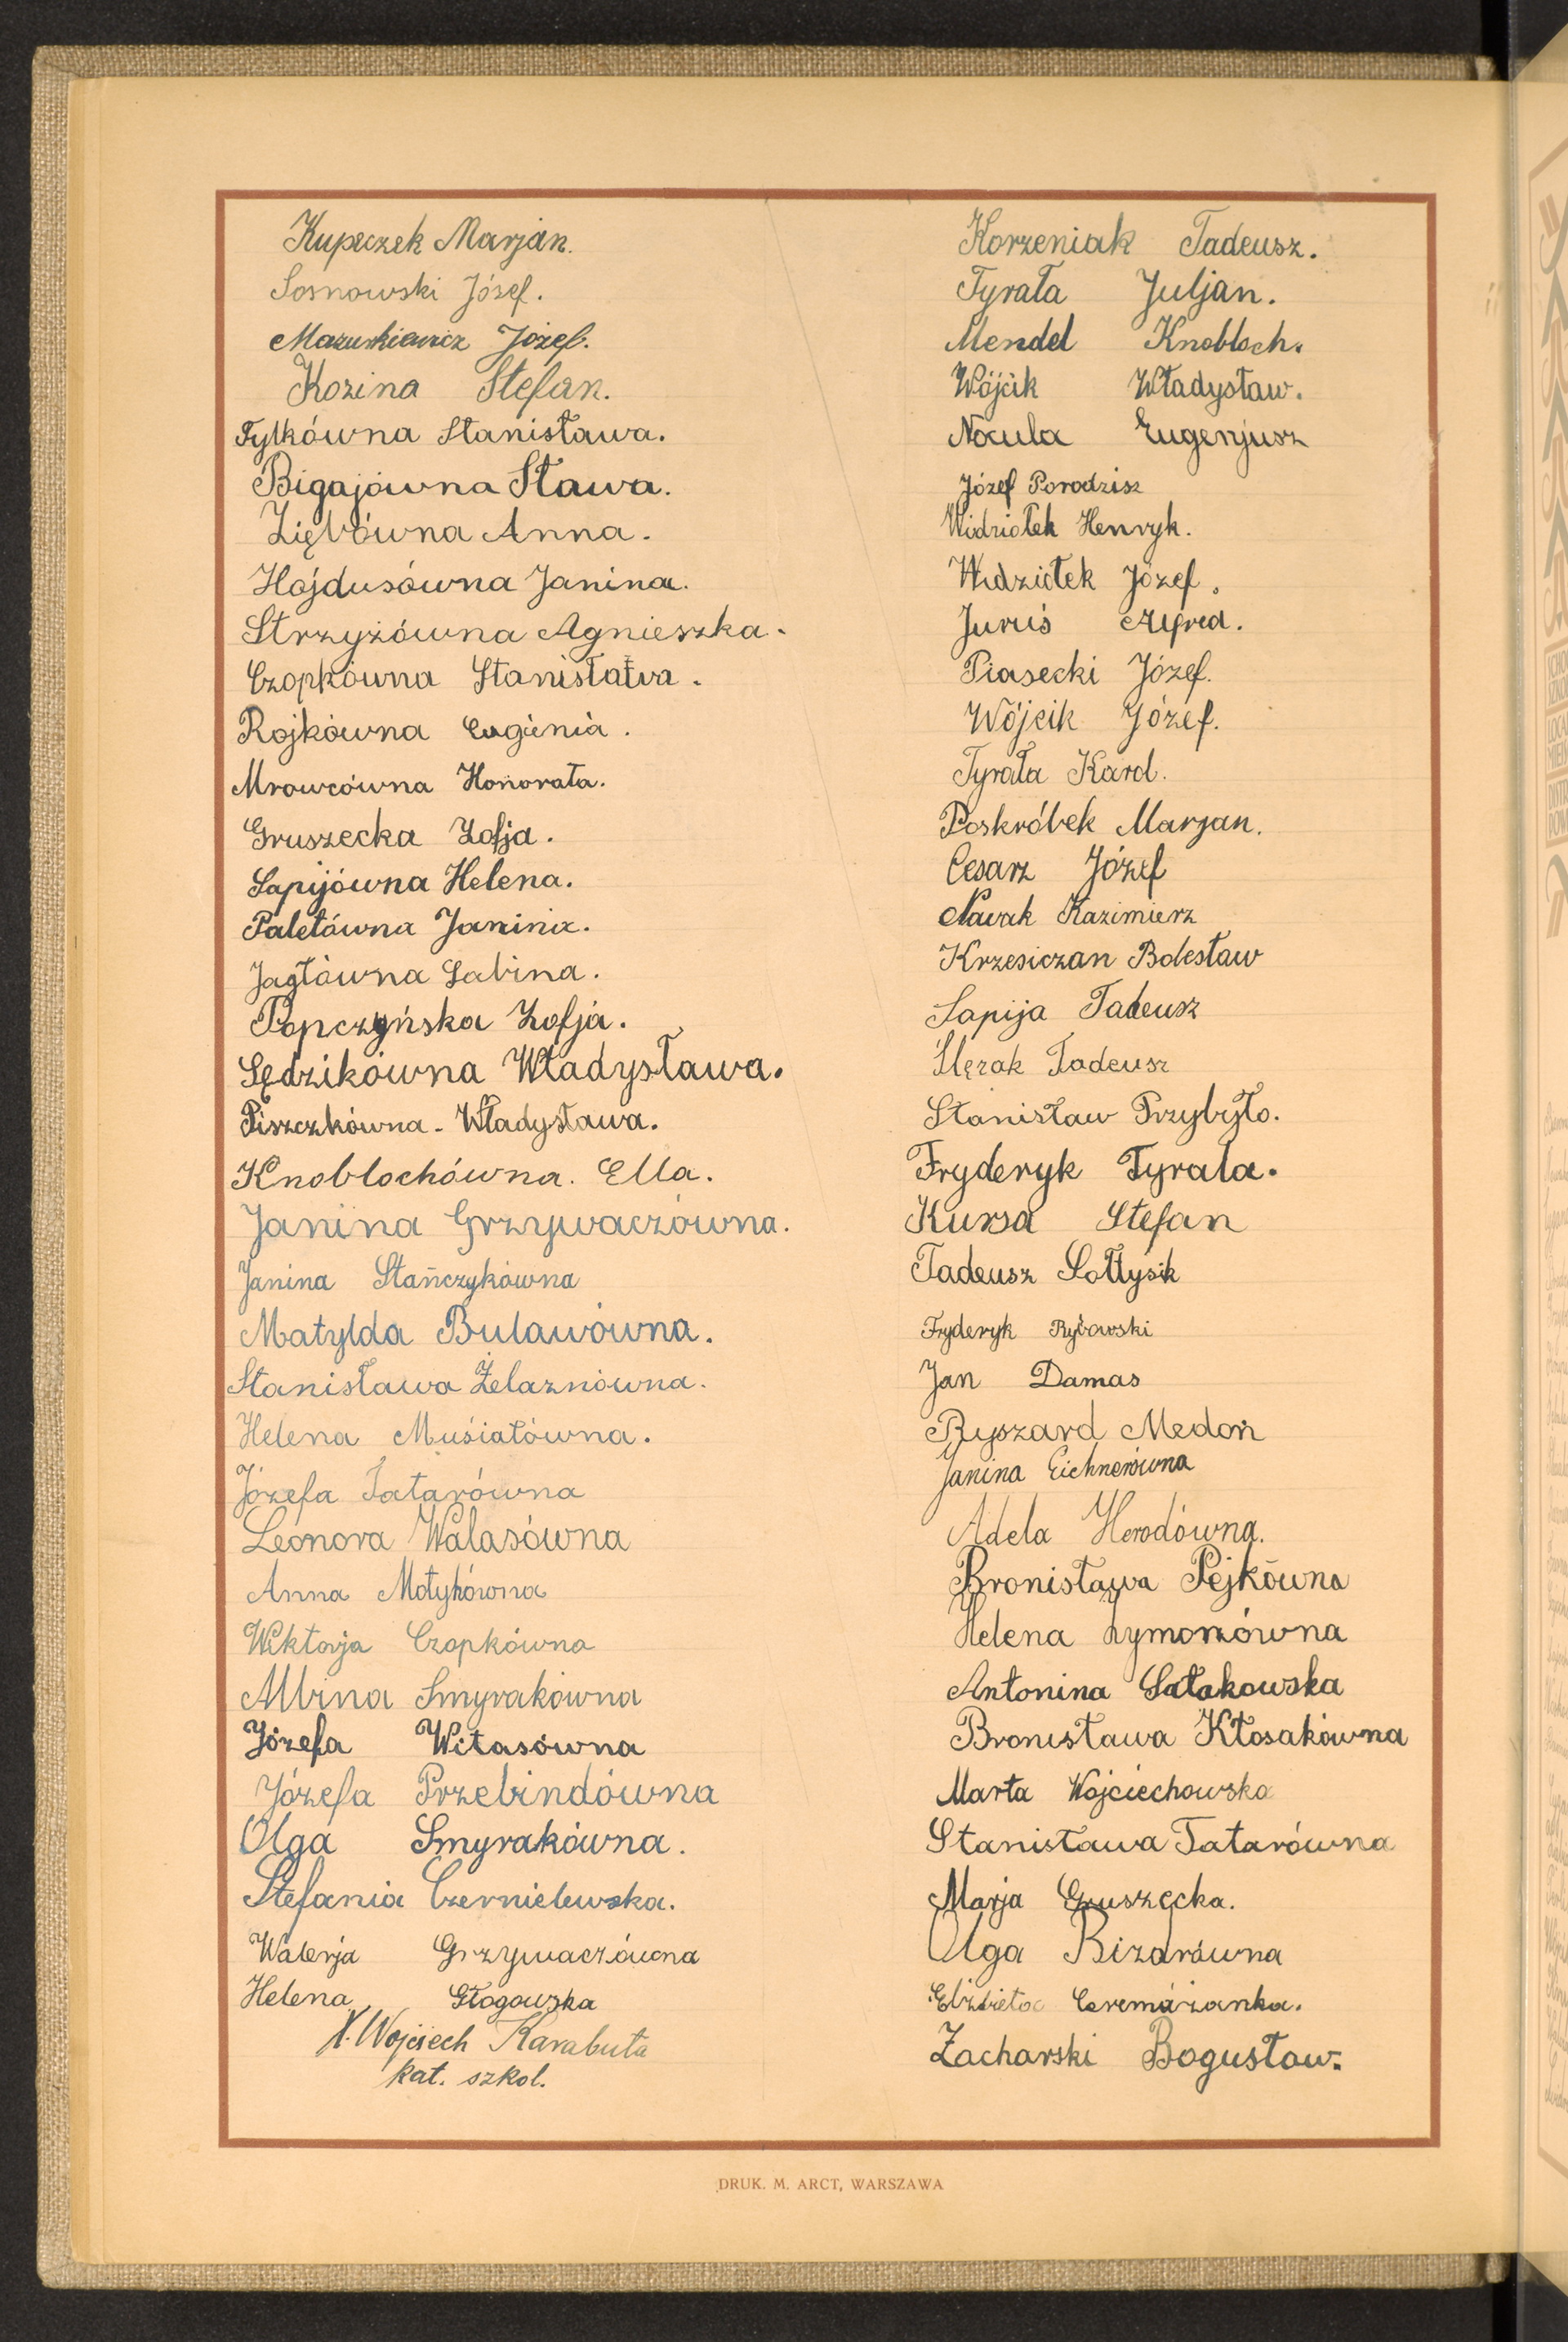 Kupeczek Marjan.
Sosnowski Józef.
Mazurkiewicz Józef.
Kozina Stefan.
Tylkówna Stanisława.
Bigajówna Sława.
Ziębówna Anna.
Hajdusówna Janina.
Strzyżówna Agnieszka.
Czopkówna Stanisława.
Rojkówna Eugenia.
Mrowcówna Honorata.
Gruszecka Zofja.
Sapijówna Helena.
Paletówna Janina.
Jagłówna Sabina.
Popczyńska Zofja.
Sędzikówna Władysława.
Piszczkówna. Władysława.
Knoblochówna. Ella.
Janina Grzywaczówna.
Janina Stańczykówna
Matylda Bulawówna.
Stanisława Żelaznówna.
Helena Muśiałówna.
Józefa Tatarówna
Leonora Walasówna
Anna Motykówna
Wiktorja Czopkówna
Albina Smyrakówna
Józefa Witasówna
Józefa Przebindówna
Olga Smyrakówna.
Stefania Czernielewska.
Walerja Grzywaczówna
Helena Głogowska
X. Wojciech Karabuła
kat. szkol.
Korzeniak Tadeusz.
Tyrała Juljan.
Mendel Knobloch.
Wójcik Władysław.
Nocula Eugenjusz
Józef Porodzisz
Widziołek Henryk.
Widziołek Józef.
Juruś Alfred.
Piasecki Józef.
Wójcik Józef.
Tyrała Karol.
Poskróbek Marjan.
Cesarz Józef
Nowak Kazimierz
Krzesiczan Bolesław
Sapija Tadeusz
Ślęzak Tadeusz
Stanisław Przybyło.
Fryderyk Tyrala.
Kursa Stefan
Tadeusz Sołtysik
Fryderyk Rybowski
Jan Damas
Ryszard Medoń
Janina Eichnerówna
Adela Herodówna.
Bronisława Pejkówna
Helena Szymonówna
Antonina Sałakowska
Bronisława Kłosakówna
Marta Wojciechowska
Stanisława Tatarówna
Marja Gruszecka.
Olga Bizarówna
Elżbieta Ceremużanka.
Zacharski Bogusław.
DRUK. M. ARCT, WARSZAWA